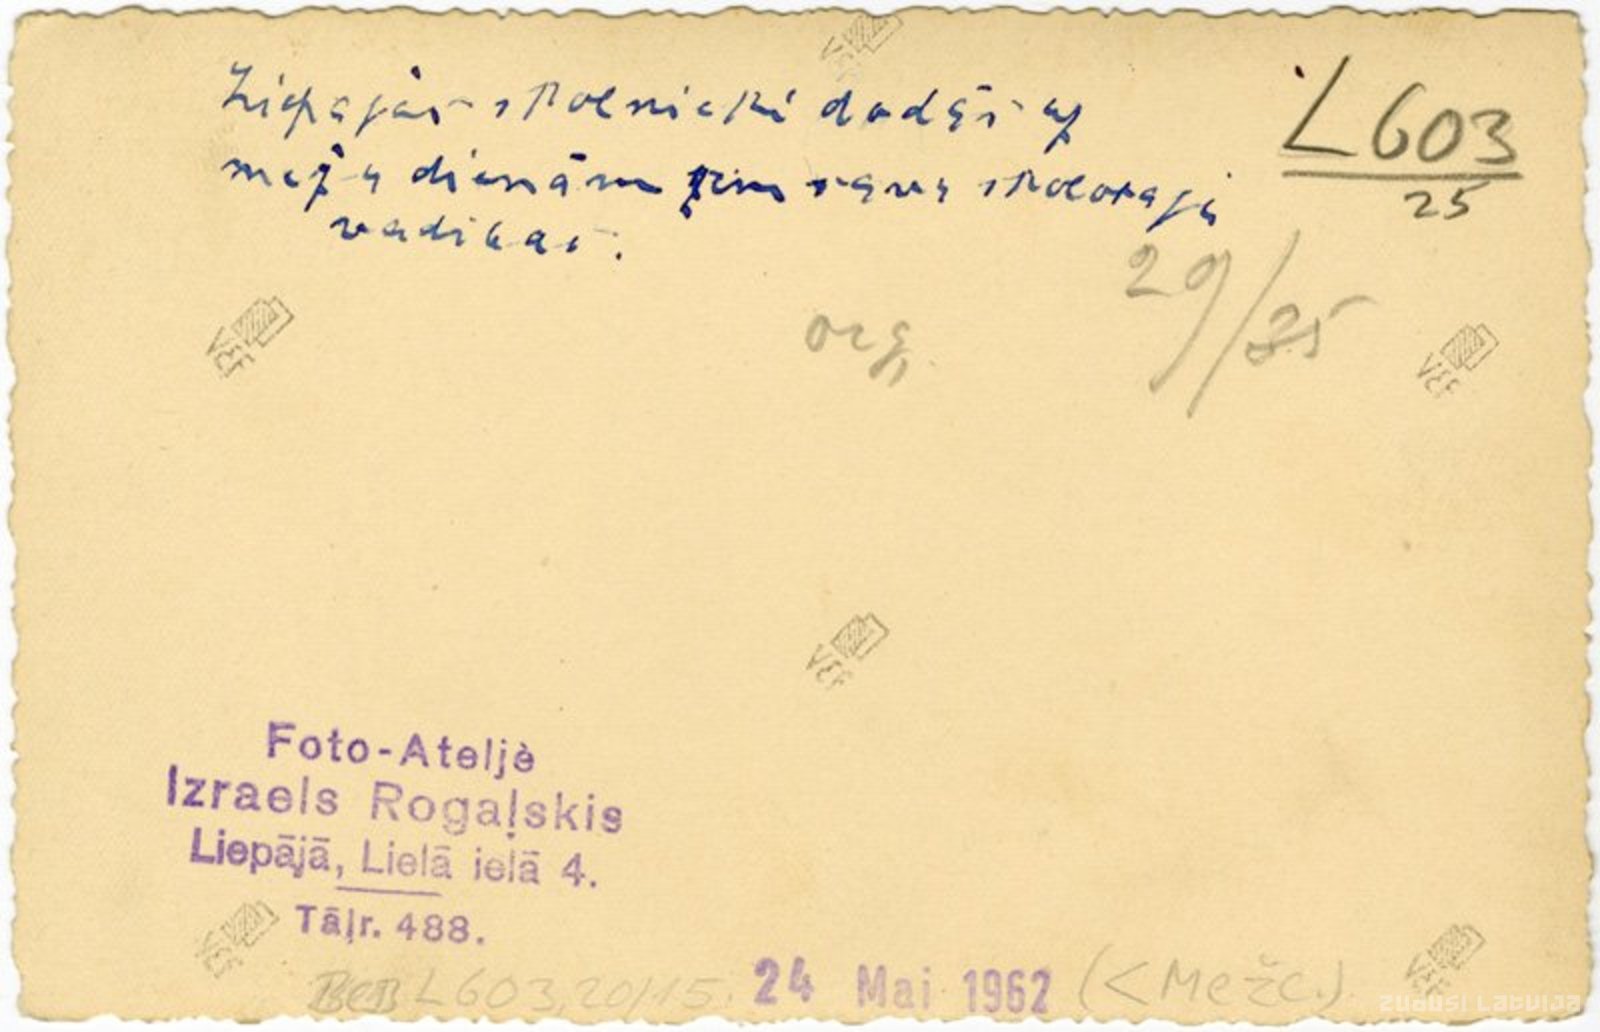 Liepājas skolnieki dodās uz
meža dienām zem savu skolotāju
vadibas.
L603
25
29/35
org.
VEF
VEF
VEF
VEF
Foto-Ateljè
Izraels Rogaļskis
Liepājā, Lielā ielā 4.
Tāļr. 488.
VEF
VEF
L603,20/15. 24 Mai 1962 (<Mežc.)
zudusi Latvija